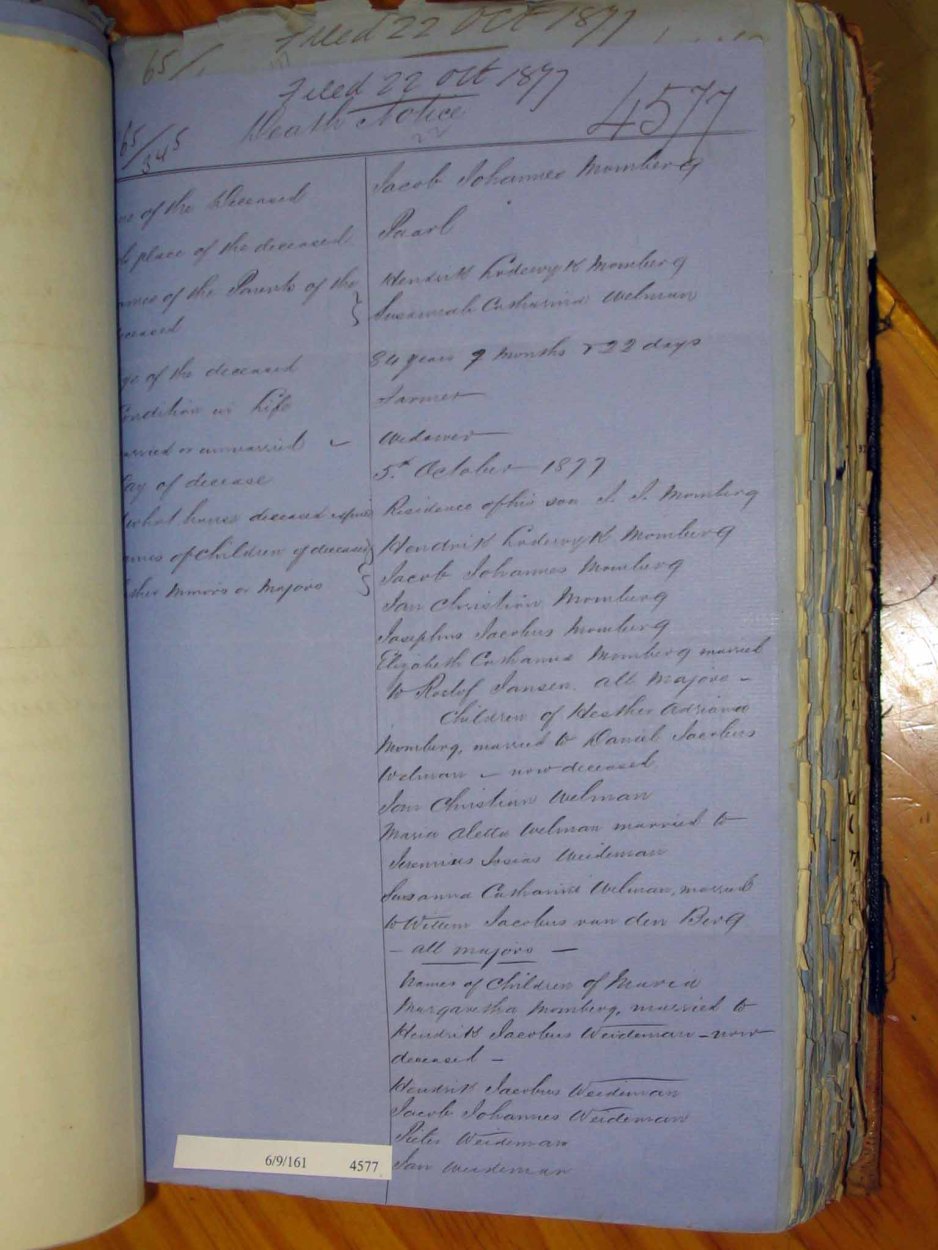 Filed 22 Oct 1877
65/
Filed 22 Oct 1877
65/345
Death Notice
4577
of the Deceased
Jacob Johannes Momberg
place of the deceased
Paarl
ames of the Parents of the
eceased
Hendrik Lodewyk Momberg
Susannah Catharina Welman
ge of the deceased
84 years 9 Months & 22 days
ondition in Life
Farmer
arried or unmarried
Widower
ay of decease
5th October 1877
what house deceased
Residence of his son J. J. Momberg
ames of Children of deceased
ther Minors or Majors
Hendrik Lodewyk Momberg
Jacob Johannes Momberg
Jan Christian Momberg
Josephus Jacobus Momberg
Elizabeth Catharina Momberg married
to Roelof Jansen. all Majors -
Children of Hesther Adriana
Momberg, married to Daniel Jacobus
Welman - now deceased
Jan Christian Welman
Maria Aletta Welman married to
Jeremias Josias Weideman
Susanna Catharina Welman, married
to Willem Jacobus van den Berg
- all majors -
Names of Children of Maria
Margaretha Momberg, married to
Hendrik Jacobus Weideman - now
deceased -
Hendrik Jacobus Weideman
Jacob Johannes Weideman
Pieter Weideman
Jan Weideman
6/9/161 4577